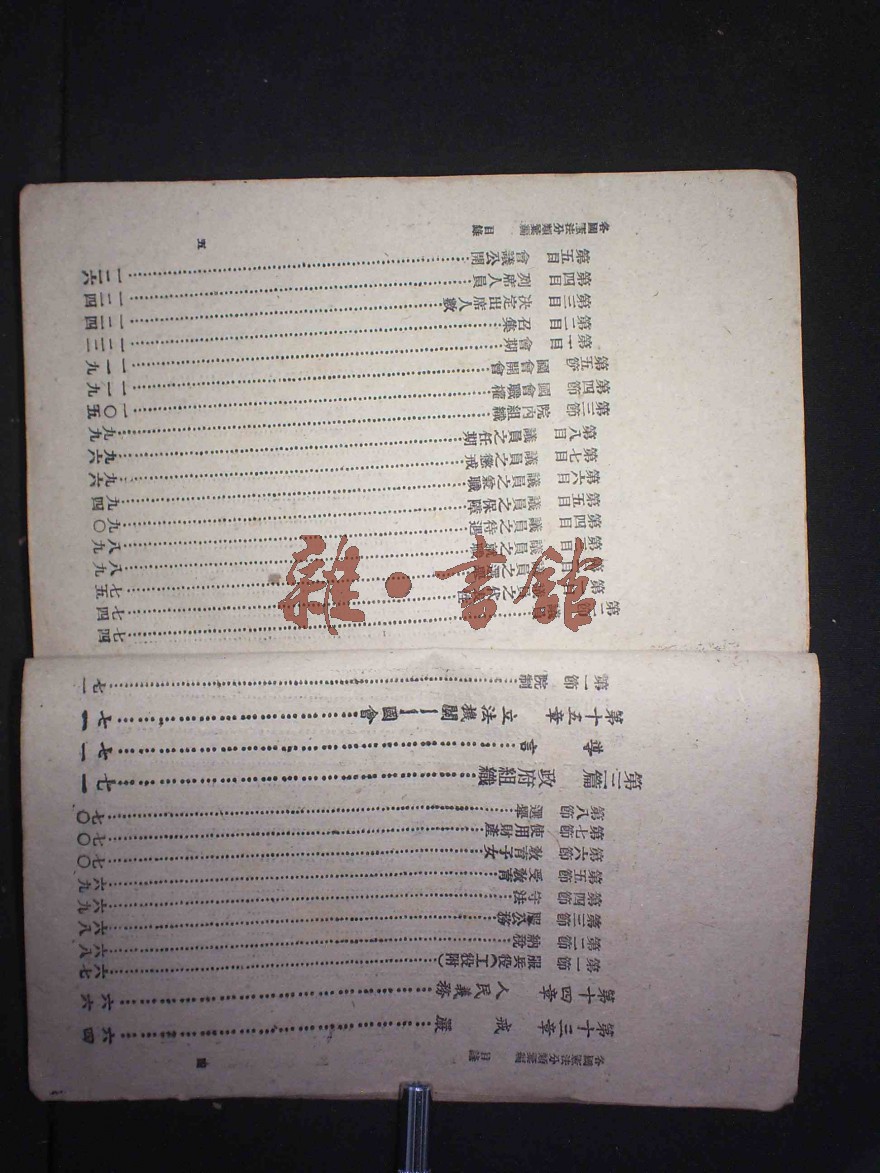 各國憲法分類彙編 目錄 四
第十三章 戒嚴 六四
第十四章 人民義務 六六
第一節 服兵役(工役附) 六七
第二節 納稅 六八
第三節 服公務 六八
第四節 守法 六九
第五節 受教育 六九
第六節 教育子女 七〇
第七節 使用財產 七〇
第八節 選舉 七〇
第三篇 政府組織 七一
導言 七一
第十五章 立法機關——國會 七一
第一節 院制 七一
第二節 議員 七四
議員之 七四
議員之選舉 七五
第三目 議員之就職 八九
第四目 議員之待遇 八九
第五目 議員之保障 九〇
第六目 議員之兼職 九四
第七目 議員之懲戒 九六
第八目 議員之任期 九六
第三節 院內組織 九九
第四節 國會職權 一〇五
第五節 國會開會 一一九
第一目 會期 一一九
第二目 召集 一二二
第三目 決定出席人數 一二四
第四目 列席人員 一二四
第五目 會議公開 一二六
各國憲法分類彙編 目錄 五
雜·書館